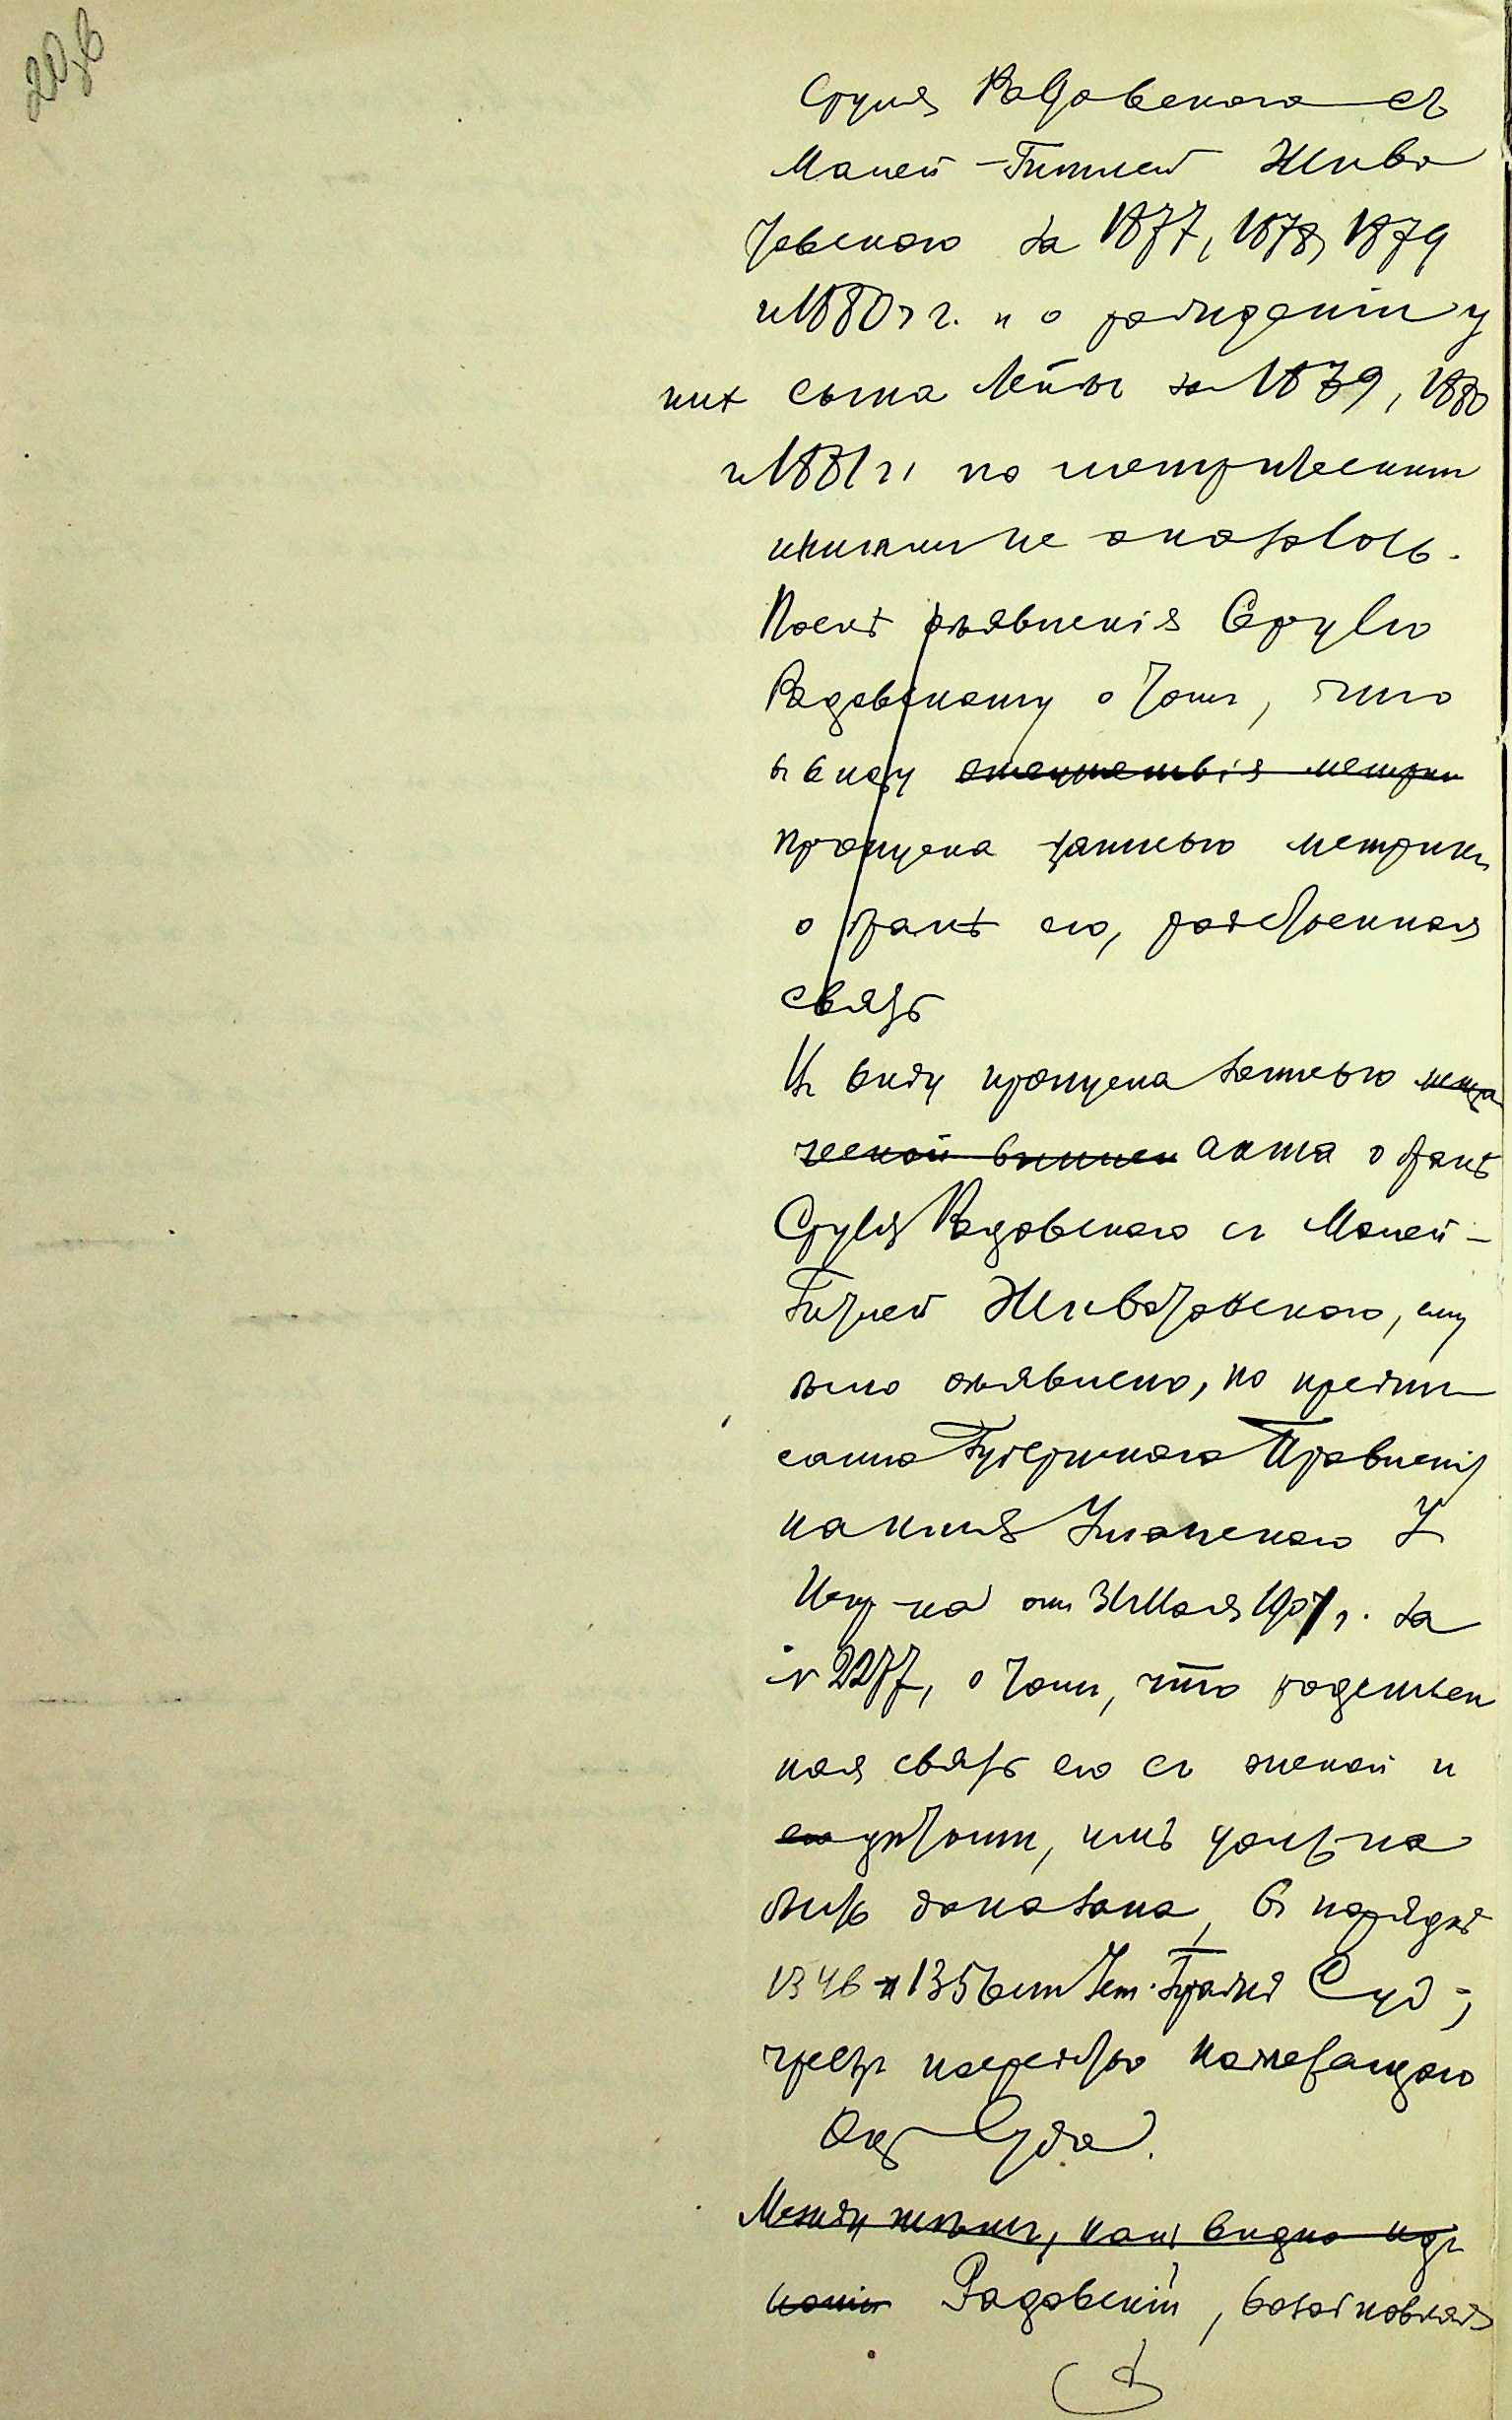 20 об
Сруля Радовскаго съ
Маней-Гитлей Живо
товскою за 1877, 1878, 1879
и 1880 г г. и о рожденіи у
них сына Лейбы за 1879, 1880
и 1881 г. по метрическим
книгамъ не оказалось.
Послѣ объявленія Срулю
Радовскому о томъ, что
въ виду отсутствія метри
пропуска записью метрики
о бракѣ его, родственная
связь
Въ виду пропуска записью метри
ческой выписи акта о бракѣ
Сруля Радовскаго съ Маней-
Гитлей Животовскою, ему
было объявлено, по предпи
санію Губернскаго Правленія
на имя Уманскаго У
Испр-ка от 31 Мая 1907 г. за
№ 2277, о томъ, что родствен
ная связь его съ женой и
его дѣтьми, имъ должна
быть доказана, въ порядкѣ
1346 и 1356 ст Уст. Гражд Суд.,
чрезъ посредство надлежащаго
Окр Суда.
Между тѣмъ, какъ видно изъ
копіи Радовскій, возобновляя